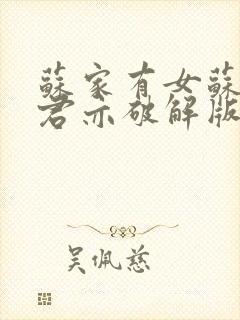 蘇家有女蘇
君亦破解版
吴佩慈